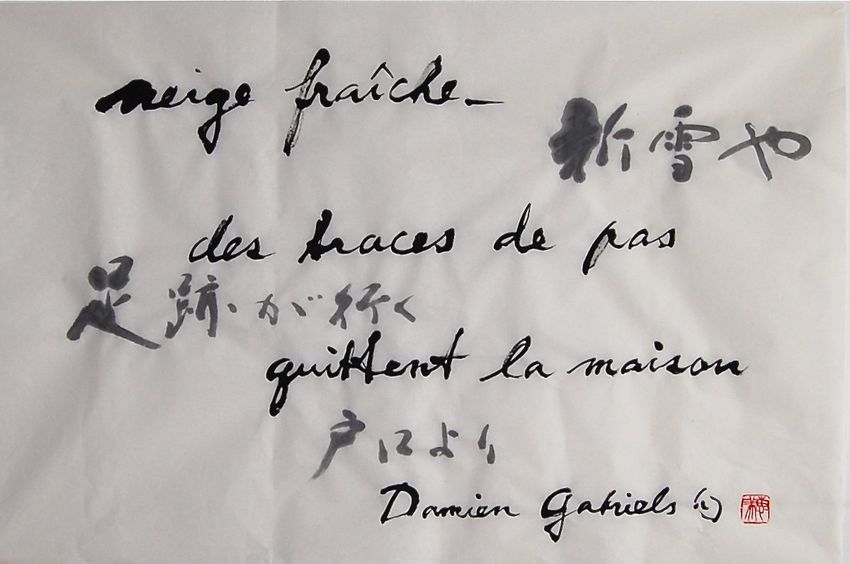 neige fraîche_
新雪や
des traces de pas
足跡が行く
quittent la maison
戸口より
Damien Gabriels